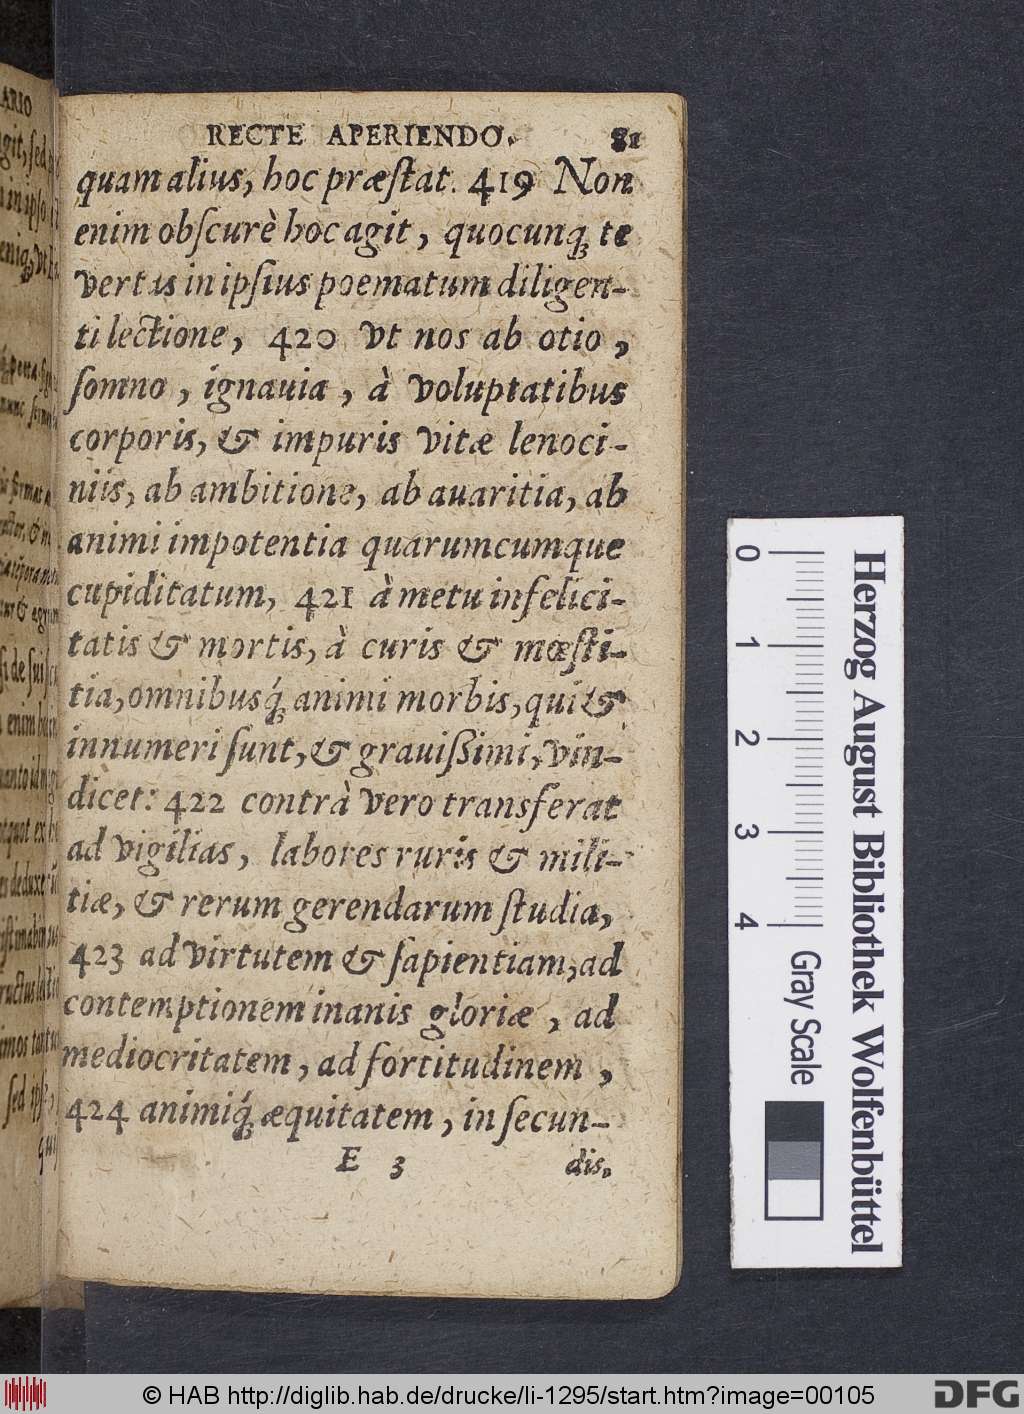 RECTE APERIENDO. 81
quam alius, hoc præſtat. 419 Non
enim obſcurè hoc agit, quocunq; te
vertas in ipſius poematum diligen-
ti lectione, 420 vt nos ab otio,
ſomno, ignauia, à voluptatibus
corporis, & impuris vitæ lenoci-
niis, ab ambitione, ab auaritia, ab
animi impotentia quarumcumque
cupiditatum, 421 à metu infelici-
tatis & mortis, à curis & mœſti-
tia, omnibusq́; animi morbis, qui &
innumeri ſunt, & grauiſſimi, vin-
dicet: 422 contrà vero transferat
ad vigilias, labores ruris & mili-
tiæ, & rerum gerendarum ſtudia,
423 ad virtutem & ſapientiam, ad
contemptionem inanis gloriæ, ad
mediocritatem, ad fortitudinem,
424 animiq́; æquitatem, in ſecun-
E 3 dis.
0 1 2 3 4
Herzog August Bibliothek Wolfenbüttel
Gray Scale
© HAB http://diglib.hab.de/drucke/li-1295/start.htm?image=00105
DFG